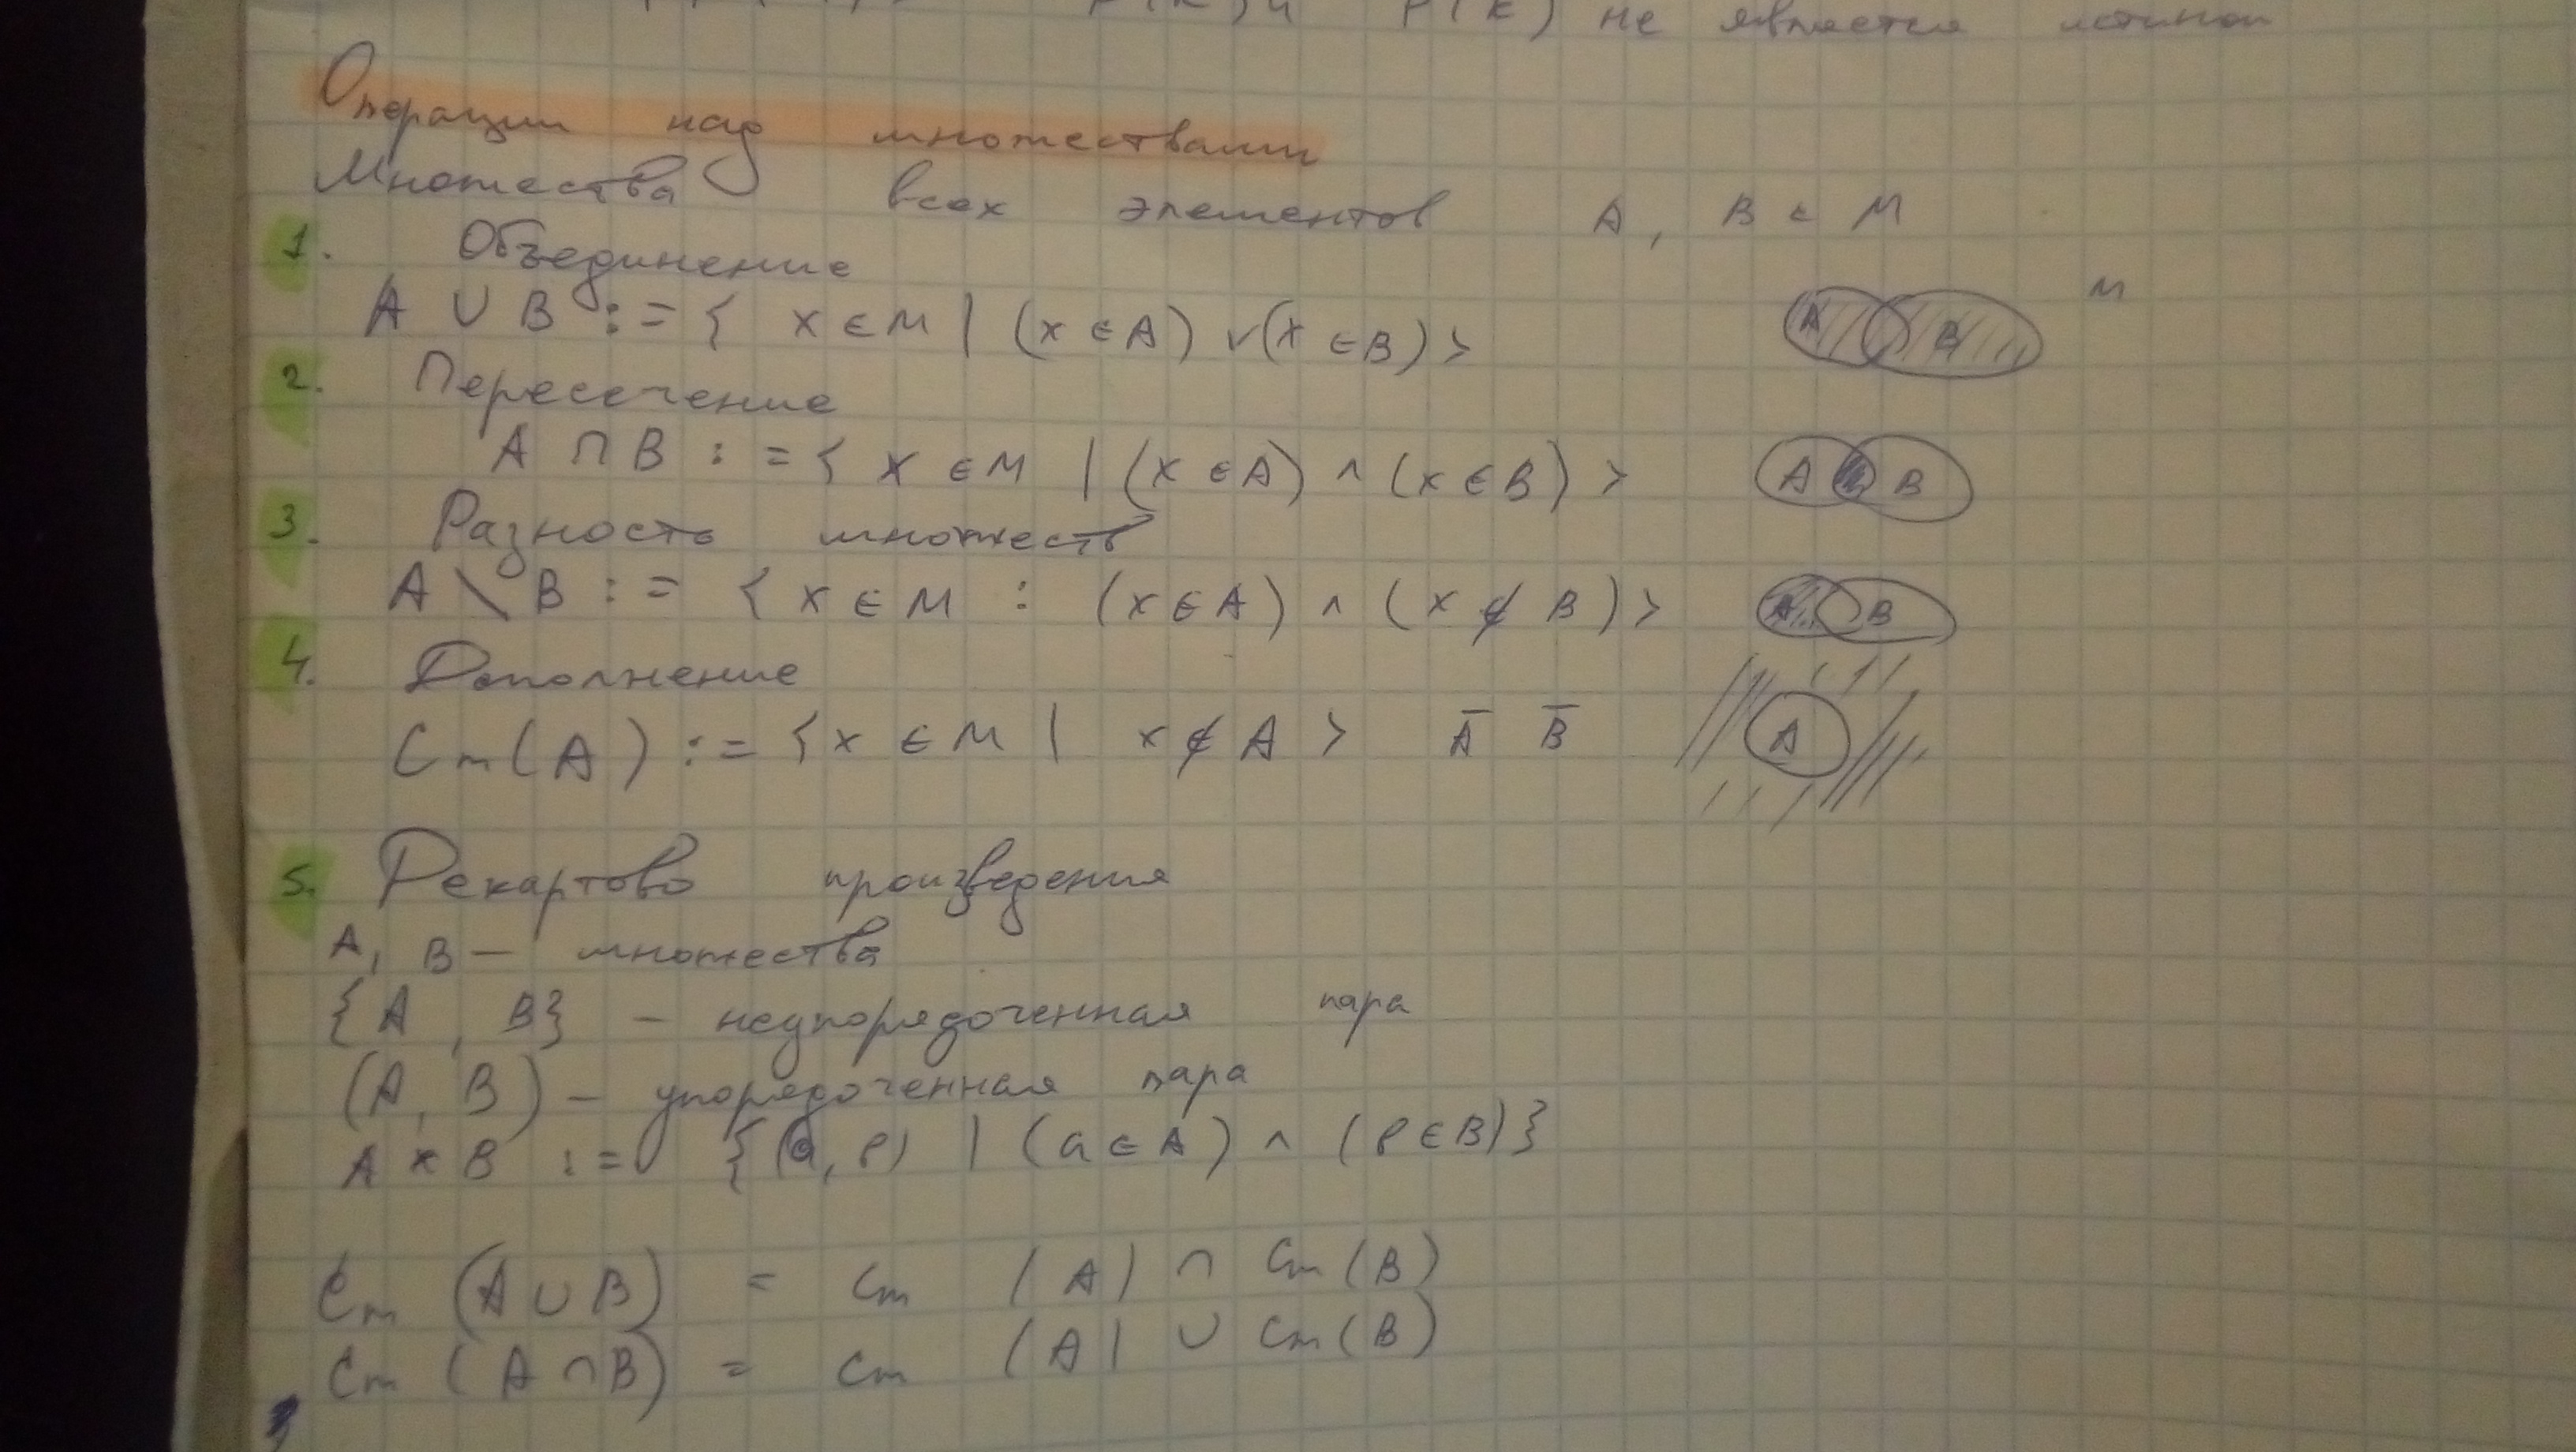 P(k) и P(k) не является истиной
Операции над множествами
Множества всех элементов A, B ⊂ M
1. Объединение
A ∪ B := { x ∈ M | (x ∈ A) ∨ (x ∈ B) >
M
A B
2. Пересечение
A ∩ B := { x ∈ M | (x ∈ A) ∧ (x ∈ B) >
A B
3. Разность множеств
A \ B := { x ∈ M : (x ∈ A) ∧ (x ∉ B) >
A B
4. Дополнение
Cm(A) := { x ∈ M | x ∉ A > Ā B̄
A
5. Декартово произведения
A, B — множества
{A, B} – неупорядоченная пара
(A, B) – упорядоченная пара
A × B := {(a, b) | (a ∈ A) ∧ (b ∈ B)}
Cm (A ∪ B) = Cm (A) ∩ Cm (B)
Cm (A ∩ B) = Cm (A) ∪ Cm (B)